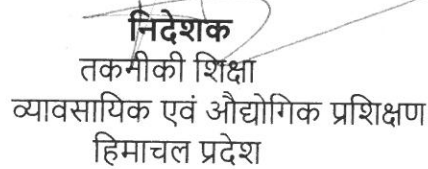 निदेशक
तकमीकी शिक्षा
व्यावसायिक एवं औद्योगिक प्रशिक्षण
हिमाचल प्रदेश